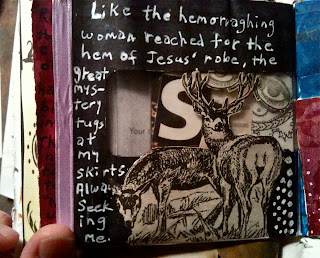 Like the hemorraghing
woman reached for the
hem of Jesus' robe, the
great
mys-
tery
tugs
at
my
skirts
Always
seek
ing
me.
Your
S